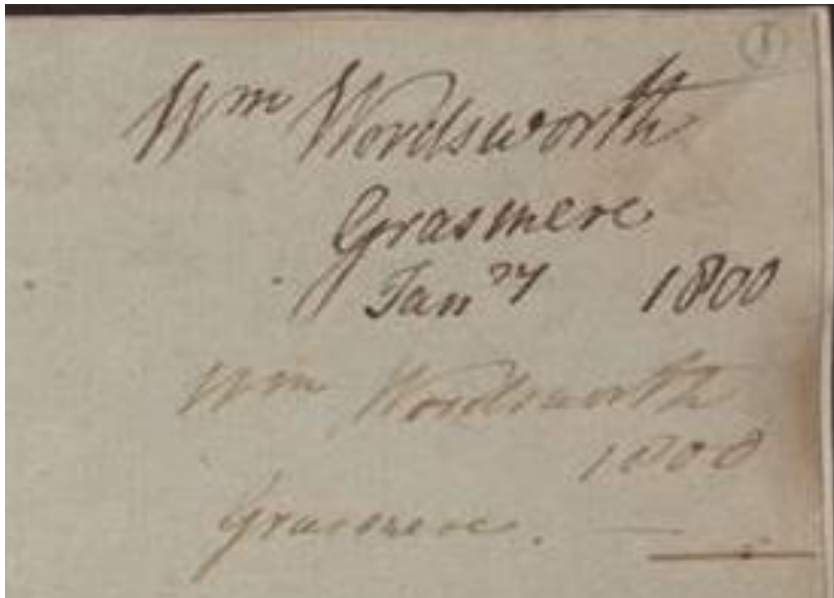 1
Wm Wordsworth
Grasmere
Janry 1800
Wm Wordsworth
1800
Grasmere.